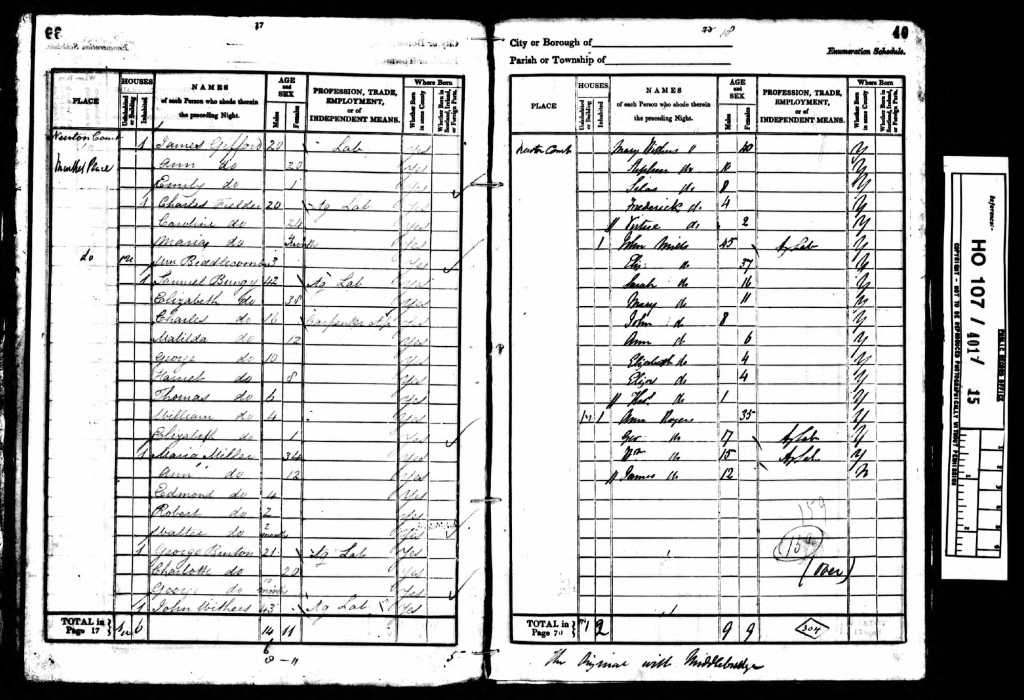 37
40
City or Borough of
Parish or Township of
Enumeration Schedule.
PLACE
HOUSES
Uninhabited or Building
Inhabited
NAMES
of each Person who abode therein
the preceding Night.
AGE and SEX
Males
Females
PROFESSION, TRADE,
EMPLOYMENT,
or of
INDEPENDENT MEANS.
Where Born
Whether Born in same County
Whether Born in Scotland, Ireland, or Foreign Parts.
1 James Gifford 20 Lab Yes
Ann do 20 Yes
Emily do 1 Yes
1 Charles Fielder 20 Ag Lab Yes
Caroline do 24 Yes
do Yes
do Wm Biddlecombe 3 Yes
1 Samuel Bungy 42 Ag Lab Yes
Elizabeth do 38 Yes
Charles do 16 Carpenter Yes
Matilda do 12 Yes
George do 10 Yes
Harriet do 8 Yes
Thomas do 6 Yes
William do 4 Yes
Elizabeth do 1 Yes
1 Maria Miller 34 Yes
Ann do 12 Yes
Edmond do 4 Yes
Robert do 2 Yes
Walter do 2 months Yes
1 George 21 Ag Lab Yes
Charlotte do 20 Yes
George do Yes
1 John Withers 43 Ag Lab Yes
TOTAL in Page 17 6 14 11
5
PLACE
HOUSES
Uninhabited or Building
Inhabited
NAMES
of each Person who abode therein
the preceding Night.
AGE and SEX
Males
Females
PROFESSION, TRADE,
EMPLOYMENT,
or of
INDEPENDENT MEANS.
Where Born
Whether Born in same County
Whether Born in Scotland, Ireland, or Foreign Parts.
Mary Withers 40 Y
Stephen do 10 Y
Silas do 8 Y
Frederick do 4 Y
do 2 Y
1 John Mills 45 Ag Lab Y
Eliz. do 37 Y
Sarah do 16 Y
Mary do 11 Y
John do 8 Y
Ann do 6 Y
Elizabeth do 4 Y
Eliza do 4 Y
Thos. do 1 Y
1 Ann Rogers 35 Y
Geo do 17 Ag Lab Y
Wm do 15 Ag Lab Y
James do 12 N
159
(over)
TOTAL in Page 1 2 9 9 304
The Original with Middlebridge
Reference:-
HO 107 / 401 / 15
PUBLIC RECORD OFFICE
COPYRIGHT - NOT TO BE REPRODUCED PHOTOGRAPHICALLY WITHOUT PERMISSION